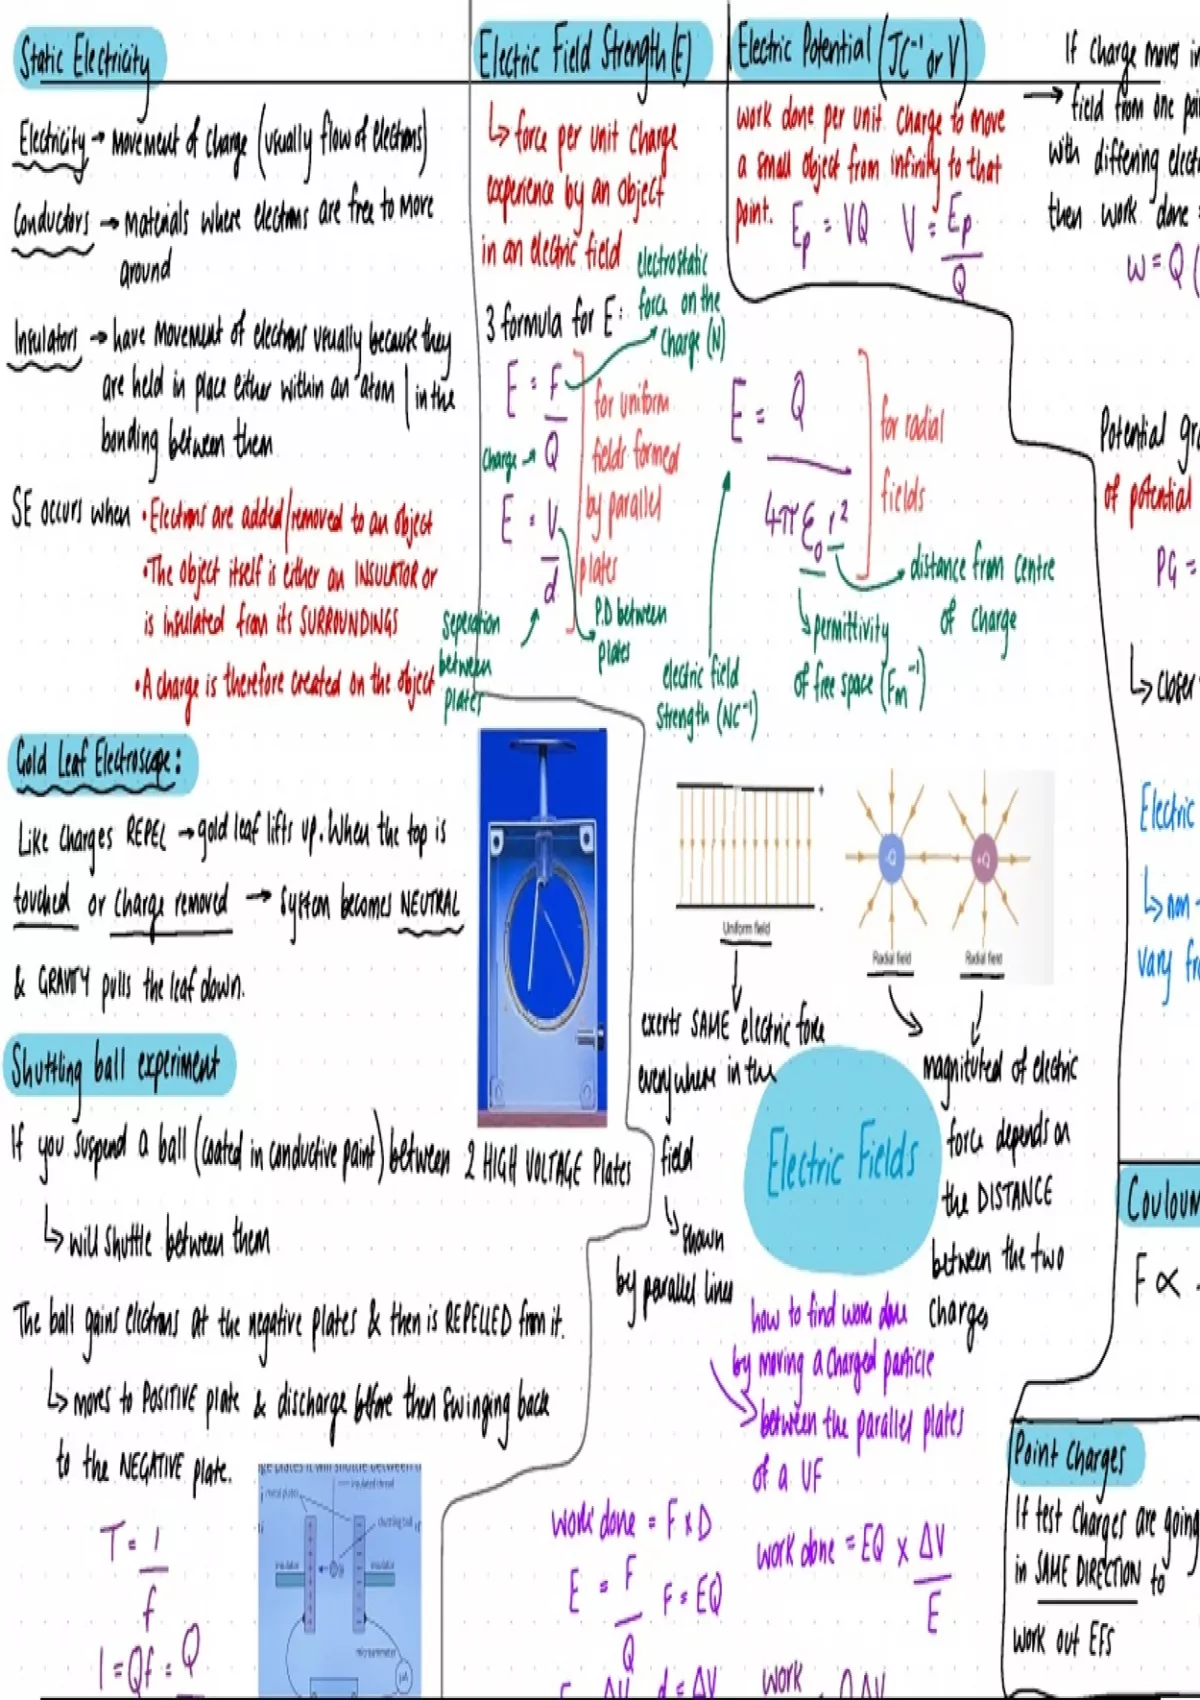 Static Electricity
Electricity → movement of charge (usually flow of electrons)
Conductors → materials where electrons are free to move
around
Insulators → have movement of electrons usually because they
are held in place either within an atom / in the
bonding between them
SE occurs when • Electrons are added/removed to an object
• The object itself is either an INSULATOR or
is insulated from its SURROUNDINGS
• A charge is therefore created on the object
Gold Leaf Electroscope:
Like charges REPEL → gold leaf lifts up. When the top is
touched or charge removed → system becomes NEUTRAL
& GRAVITY pulls the leaf down.
Shuttling ball experiment
If you suspend a ball (coated in conductive paint) between 2 HIGH VOLTAGE plates
↳ will shuttle between them
The ball gains electrons at the negative plates & then is REPELLED from it.
↳ moves to POSITIVE plate & discharge before then swinging back
to the NEGATIVE plate.
T = 1/f
I = Qf = Q
metal plates
insulated thread
shuttling ball
insulator
insulator
Electric Field Strength (E)
↳ force per unit charge
experience by an object
in an electric field
3 formula for E:
electrostatic
force on the
charge (N)
E = F/Q
charge → Q
E = V/d
for uniform
fields formed
by parallel
plates
seperation
between
plates
P.D between
plates
E = Q/4πε₀r²
for radial
fields
electric field
strength (NC⁻¹)
permittivity
of free space (Fm⁻¹)
distance from centre
of charge
Electric Potential (JC⁻¹ or V)
work done per unit charge to move
a small object from infinity to that
point.
Ep = VQ V = Ep/Q
If charge moves in
→ field from one poi
with differing elect
then work done =
W = Q (
Potential gra
of potential
PG =
↳ closer
Electric
↳ non-
vary fr
+
-
Uniform field
-Q
+Q
Radial field
Radial field
exerts SAME electric force
everywhere in the
field
↳ shown
by parallel lines
magnituted of electric
force depends on
the DISTANCE
between the two
charges
Electric Fields
how to find work done
by moving a charged particle
between the parallel plates
of a UF
work done = F x D
E = F/Q F = EQ
work done = EQ x ΔV/E
d = ΔV
work
Couloum
F ∝
Point Charges
If test charges are going
in SAME DIRECTION to
work out EFS